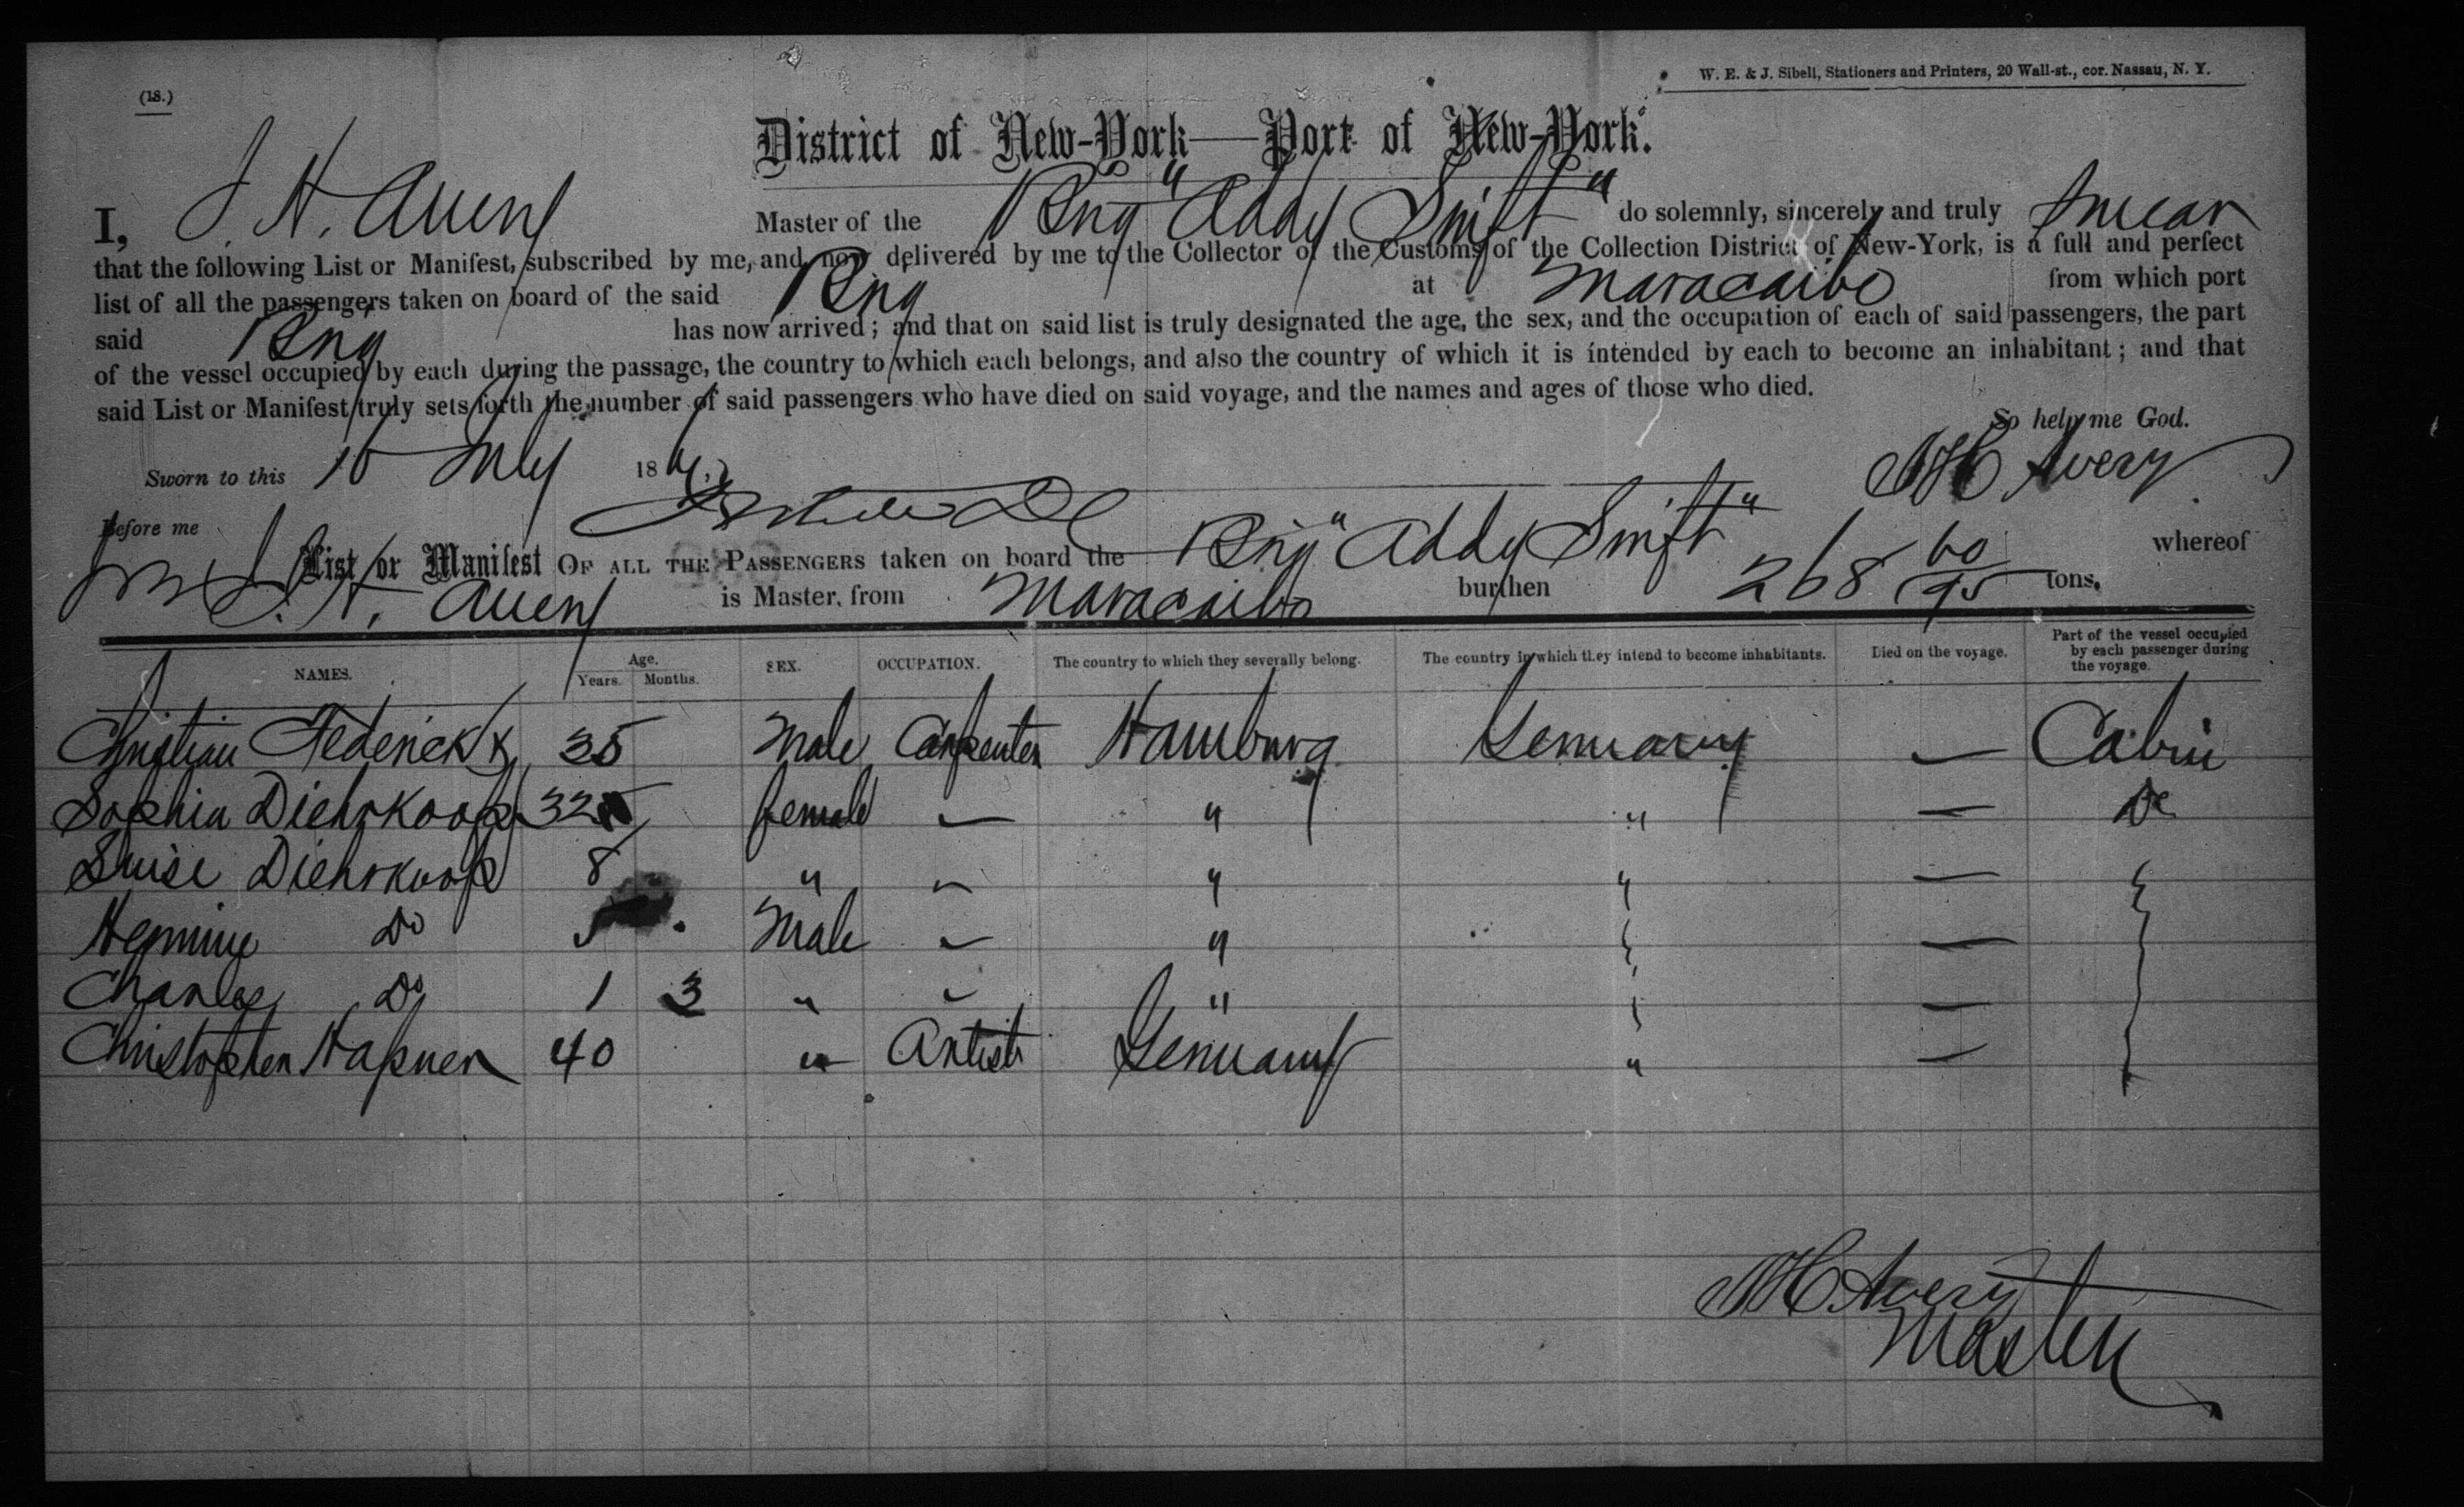 (18.)
W. E. & J. Sibell, Stationers and Printers, 20 Wall-st., cor. Nassau, N. Y.
District of New-York—Port of New-York.
I, J. H. Avery Master of the Brig "Addy Swift" do solemnly, sincerely and truly Swear
that the following List or Manifest, subscribed by me, and now delivered by me to the Collector of the Customs of the Collection District of New-York, is a full and perfect
list of all the passengers taken on board of the said Brig at Maracaibo from which port
said Brig has now arrived; and that on said list is truly designated the age, the sex, and the occupation of each of said passengers, the part
of the vessel occupied by each during the passage, the country to which each belongs, and also the country of which it is intended by each to become an inhabitant; and that
said List or Manifest truly sets forth the number of said passengers who have died on said voyage, and the names and ages of those who died.
So help me God.
Sworn to this 16 July 18
Avery
Before me
List or Manifest OF ALL THE PASSENGERS taken on board the Brig "Addy Swift" whereof
J. H. Avery is Master, from Maracaibo burthen 268 60/95 tons.
NAMES. Age. Years. Months. SEX. OCCUPATION. The country to which they severally belong. The country in which they intend to become inhabitants. Died on the voyage. Part of the vessel occupied by each passenger during the voyage.
Christian 35 Male Carpenter Hamburg Germany — Cabin
Sophia Diehrkoop 32 female — " " — Do
Luise Diehrkoop 8 " — " " —
Do 5 Male — " —
Charles Do 1 3 " — " —
Christopher Hafner 40 " Artist Germany " —
Avery
Master